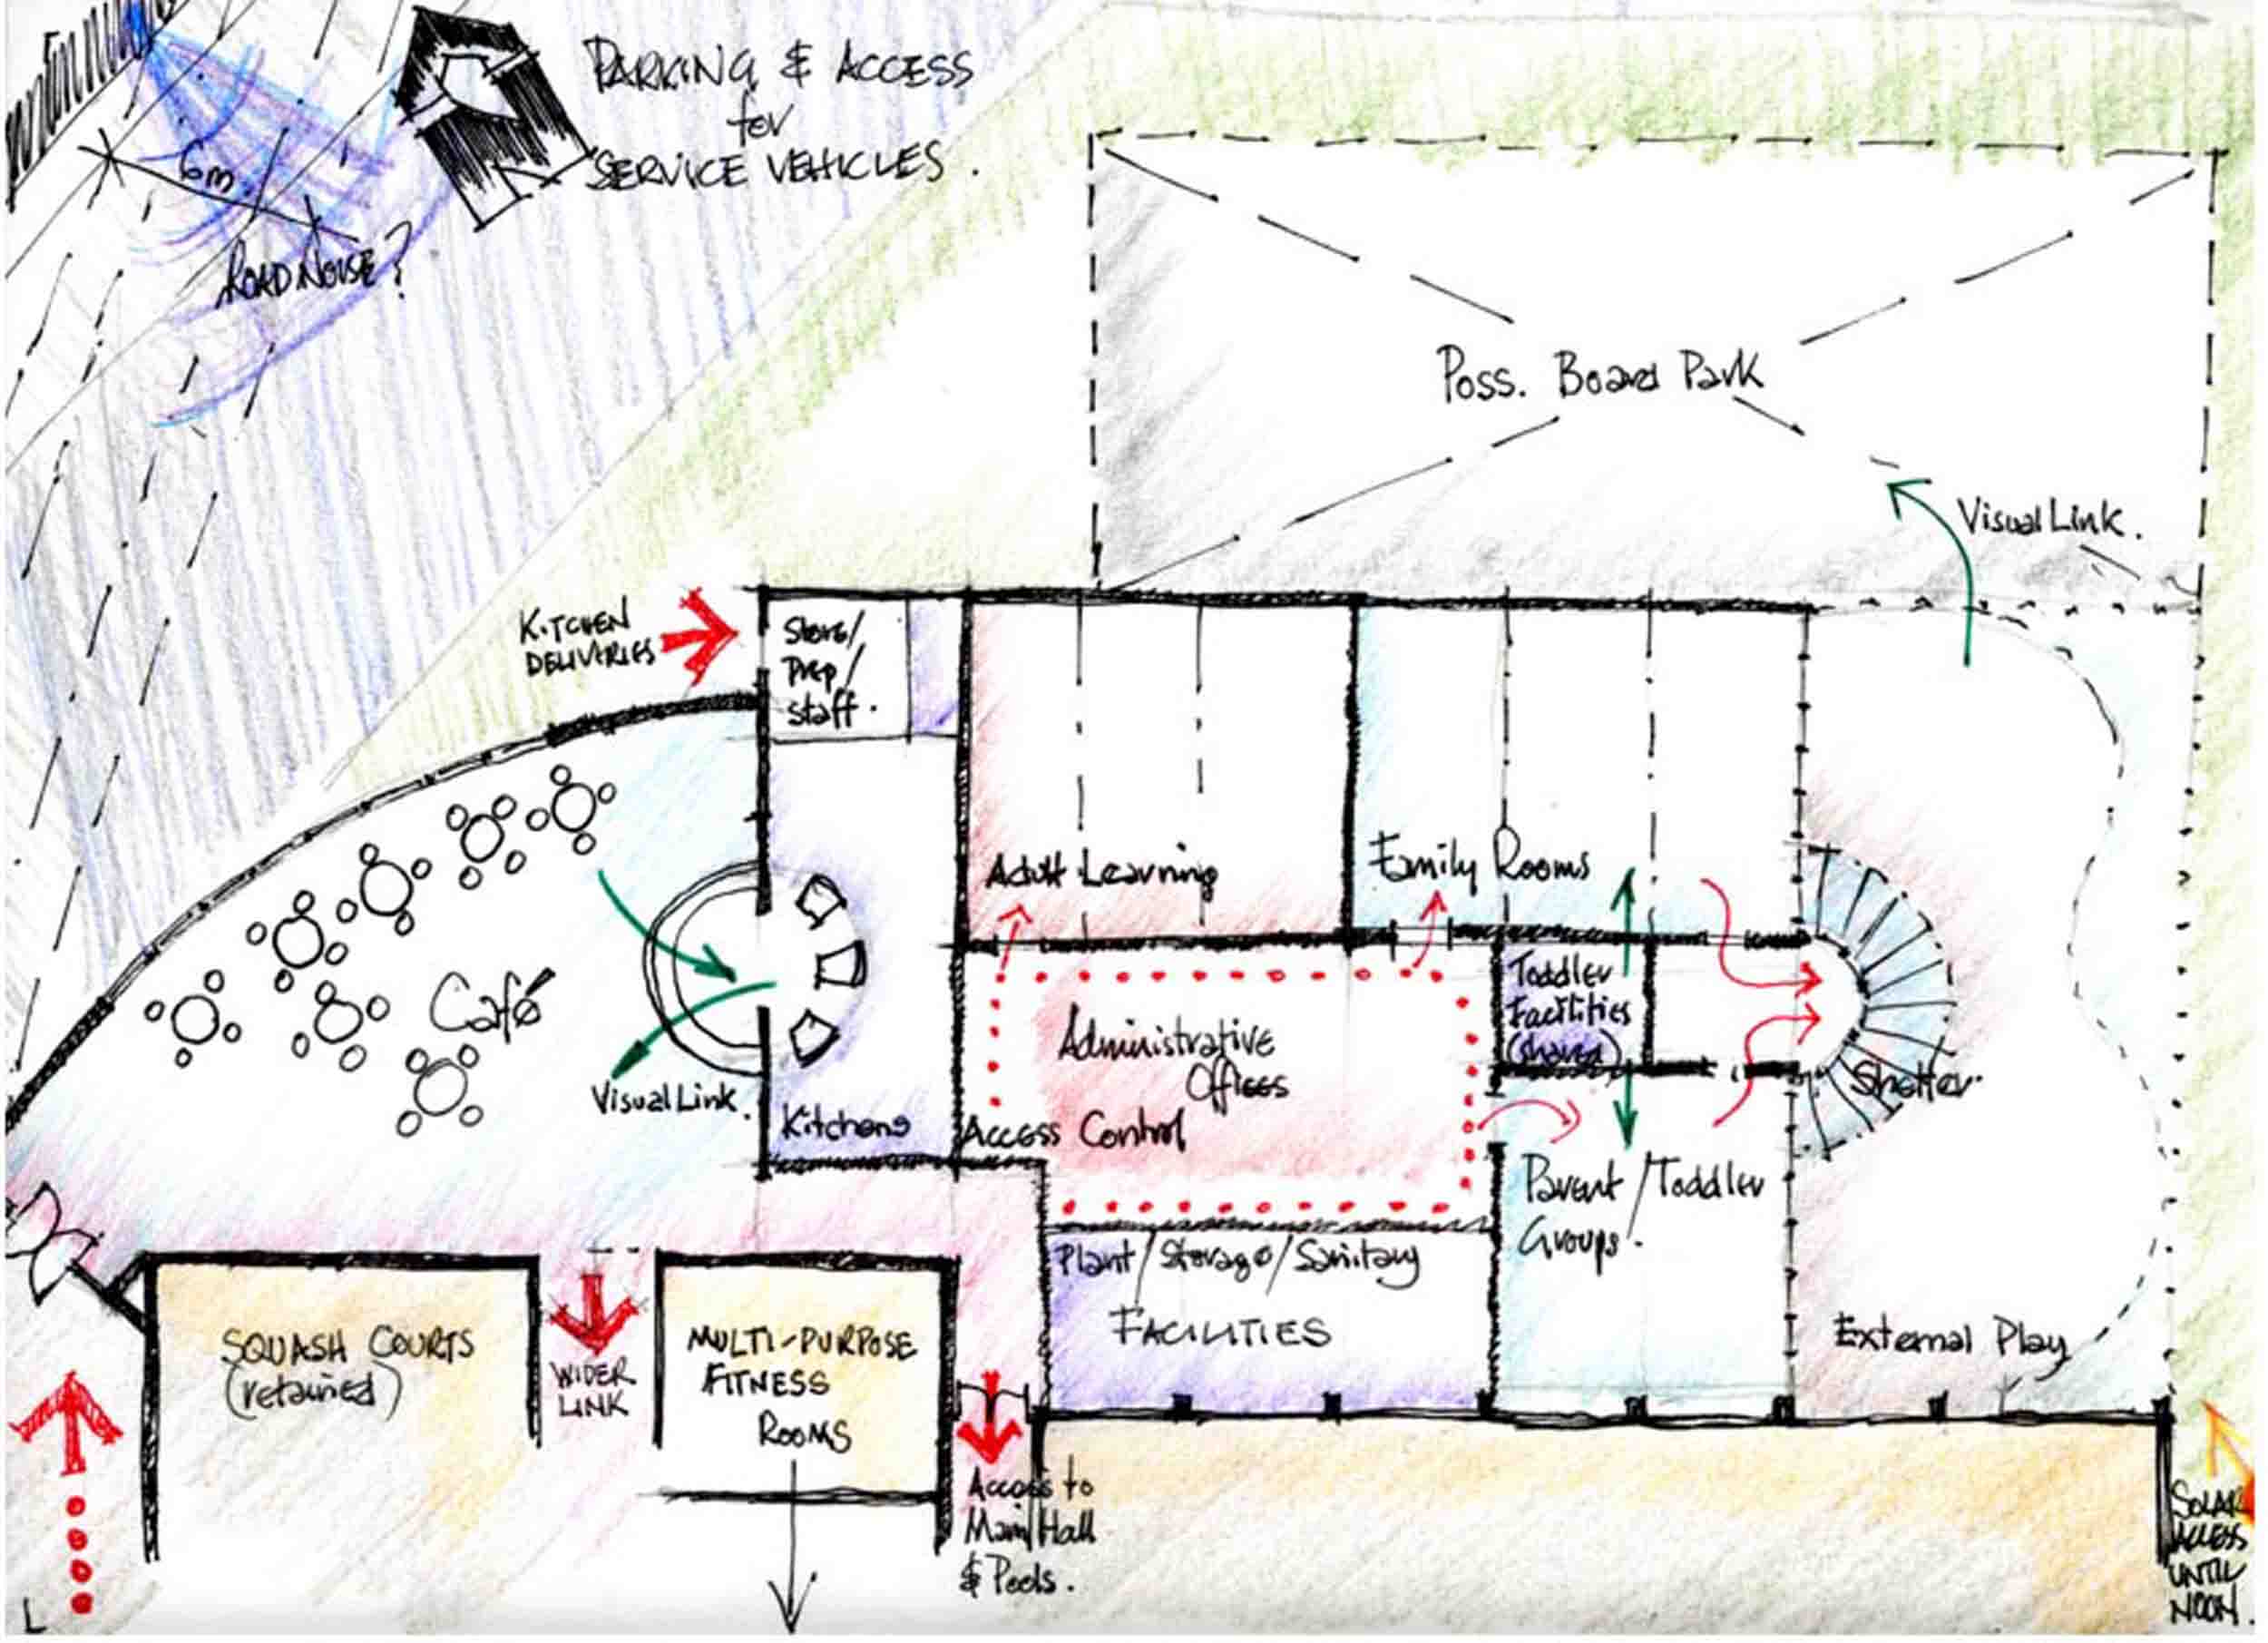 PARKING & ACCESS
for
SERVICE VEHICLES.
6m.
ROAD NOISE?
Poss. Board Park
Visual Link.
KITCHEN
DELIVERIES
Store/
Prep/
Staff.
Adult Learning
Family Rooms
Café
Toddler
Facilities
(shared)
Administrative
Offices
Shelter.
Visual Link.
Kitchens
Access Control
Parent/Toddler
Groups.
Plant/Storage/Sanitary
FACILITIES
SQUASH COURTS
(retained)
WIDER
LINK
MULTI-PURPOSE
FITNESS
ROOMS
External Play
Access to
Main Hall
& Pools.
SOLAR
ACCESS
UNTIL
NOON.